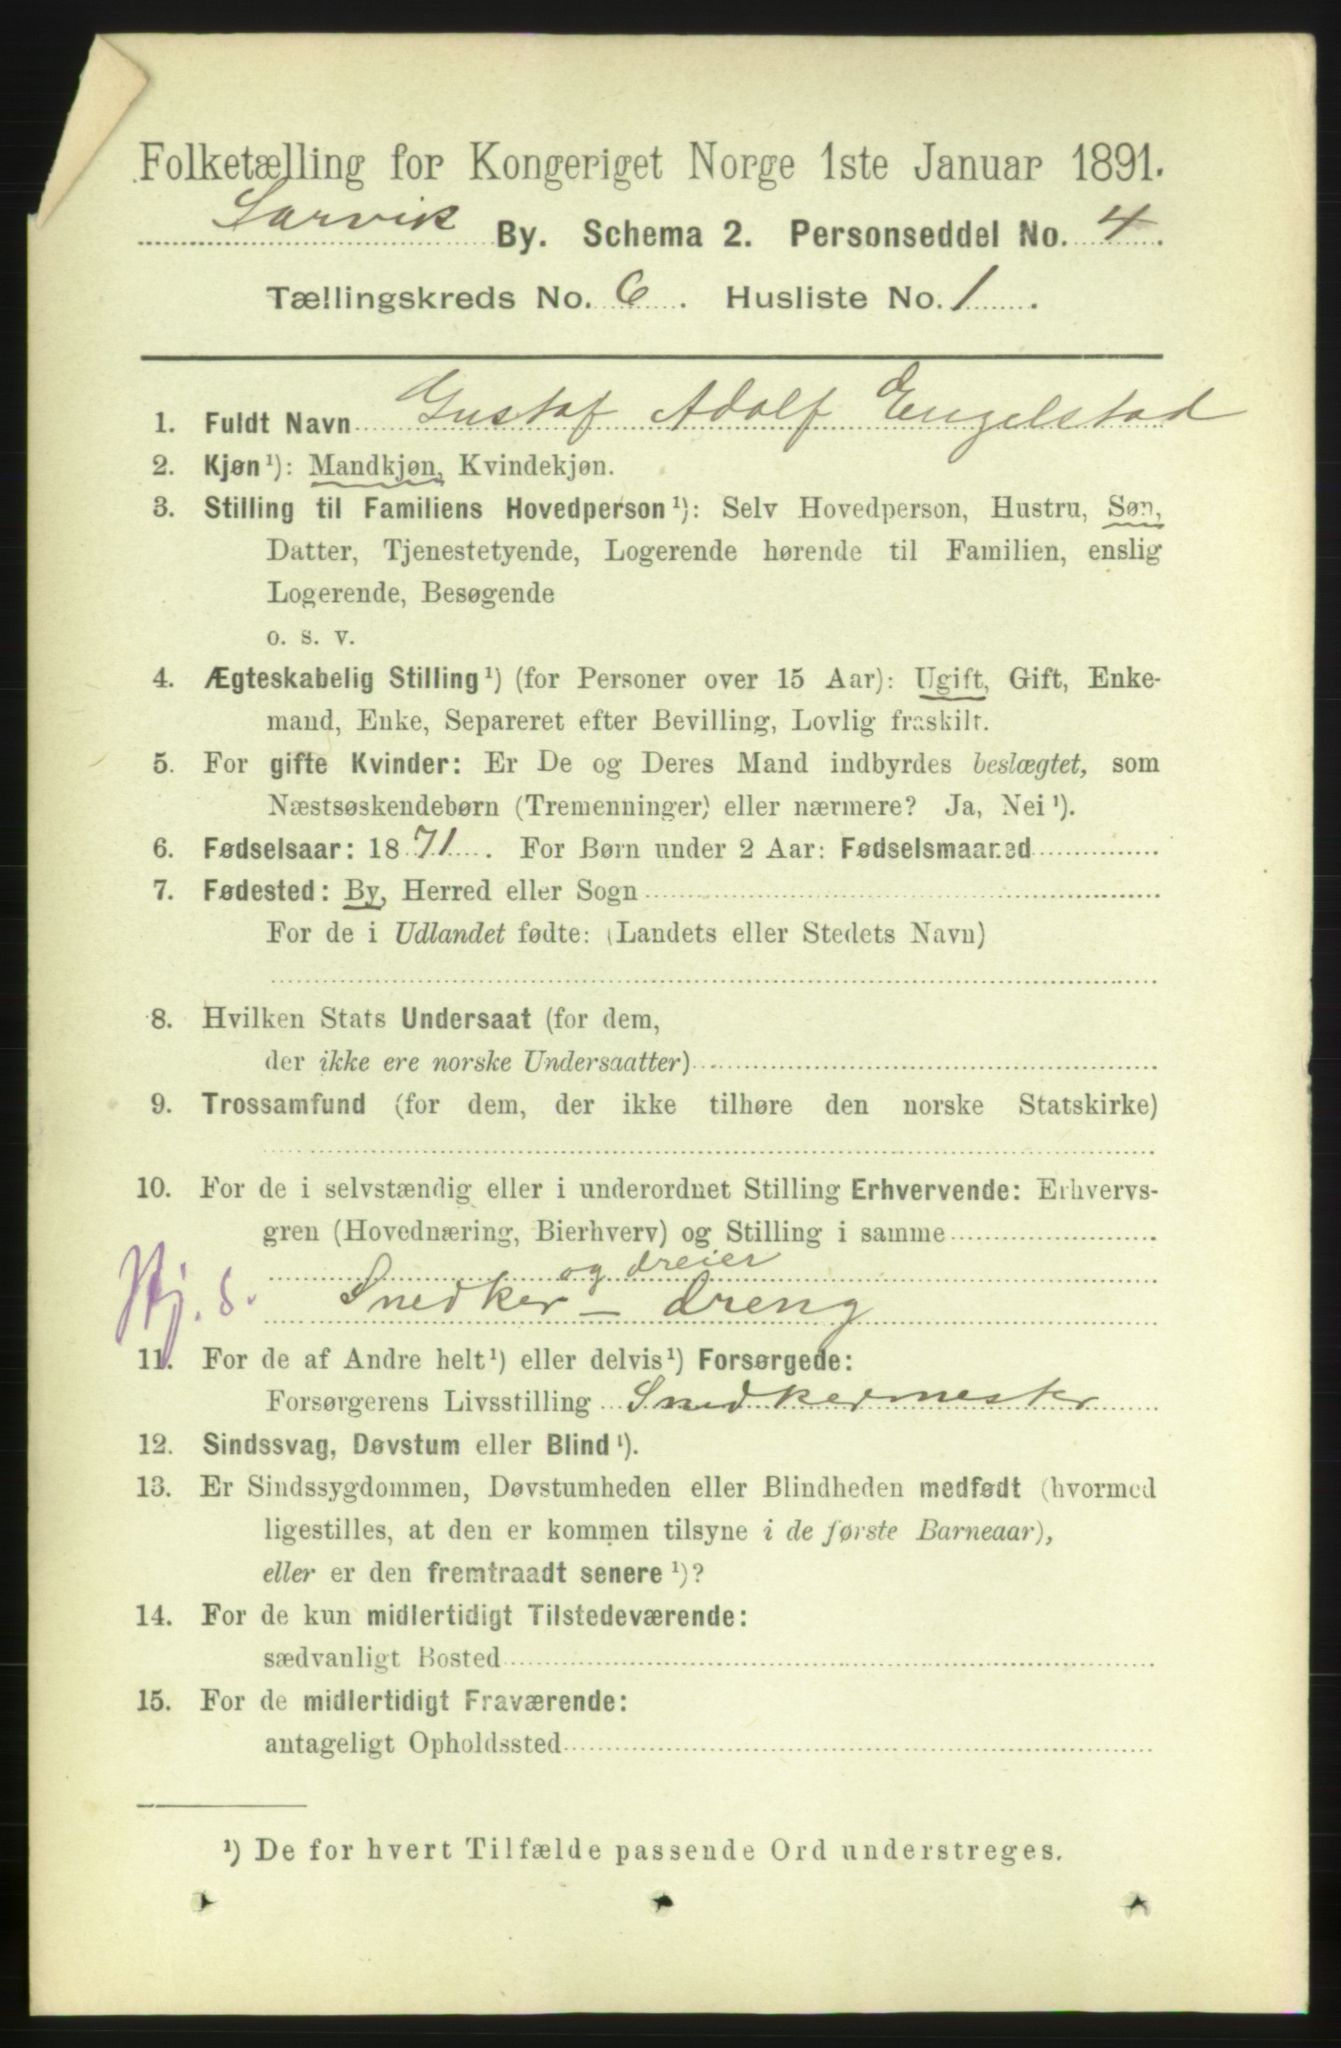 Folketælling for Kongeriget Norge 1ste Januar 1891.
Larvik By. Schema 2. Personseddel No. 4.
Tællingskreds No. 6. Husliste No. 1.
1. Fuldt Navn Gustaf Adolf Engelstad
2. Kjøn ¹): Mandkjøn, Kvindekjøn.
3. Stilling til Familiens Hovedperson ¹): Selv Hovedperson, Hustru, Søn,
Datter, Tjenestetyende, Logerende hørende til Familien, enslig
Logerende, Besøgende
o. s. v.
4. Ægteskabelig Stilling ¹) (for Personer over 15 Aar): Ugift, Gift, Enke-
mand, Enke, Separeret efter Bevilling, Lovlig fraskilt.
5. For gifte Kvinder: Er De og Deres Mand indbyrdes beslægtet, som
Næstsøskendebørn (Tremenninger) eller nærmere? Ja, Nei ¹).
6. Fødselsaar: 1871. For Børn under 2 Aar: Fødselsmaaned
7. Fødested: By, Herred eller Sogn
For de i Udlandet fødte: (Landets eller Stedets Navn)
8. Hvilken Stats Undersaat (for dem,
der ikke ere norske Undersaatter)
9. Trossamfund (for dem, der ikke tilhøre den norske Statskirke)
10. For de i selvstændig eller i underordnet Stilling Erhvervende: Erhvervs-
gren (Hovednæring, Bierhverv) og Stilling i samme
og dreier
Snedker - dreng
11. For de af Andre helt ¹) eller delvis ¹) Forsørgede:
Forsørgerens Livsstilling Snedkermester
12. Sindssvag, Døvstum eller Blind ¹).
13. Er Sindssygdommen, Døvstumheden eller Blindheden medfødt (hvormed
ligestilles, at den er kommen tilsyne i de første Barneaar),
eller er den fremtraadt senere ¹)?
14. For de kun midlertidigt Tilstedeværende:
sædvanligt Bosted
15. For de midlertidigt Fraværende:
antageligt Opholdssted
¹) De for hvert Tilfælde passende Ord understreges.